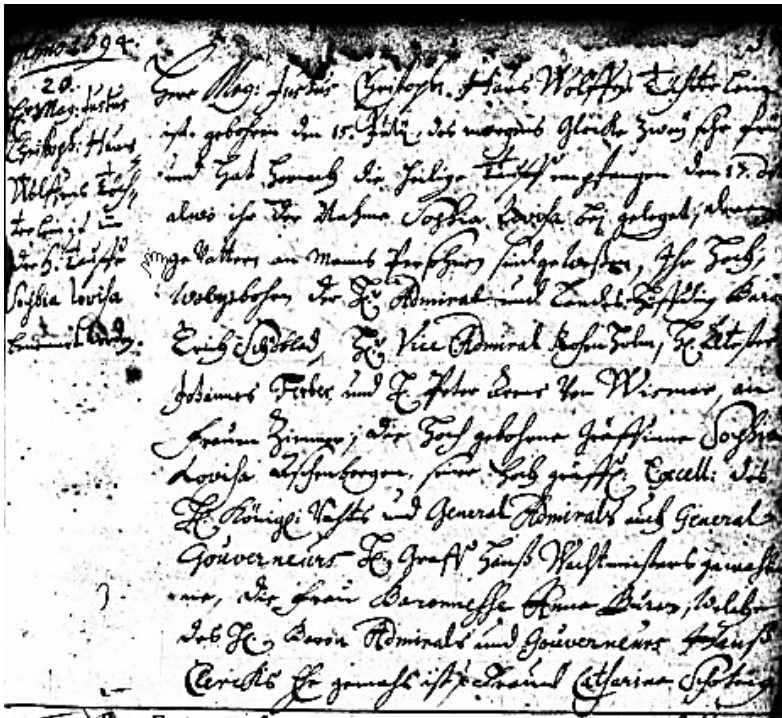 Anno 1694.
20.
H. Mag: Justus
Christoph: Hans
Wolffens Töch,
terlein ist in
der H. Tauffe
Sophia Lovisa
genennet worden.
Herr Mag: Justus Christoph. Hans Wolffens Töchterlein
ist gebohren den 15. July, des morgens Glocke zwey sehr früh
und hat hernach die heilige Tauffe empfangen den 17.
alwo ihr der Nahme Sophia Lovisa bey geleget, deren
gevattern an Manns Persohnen sind gewesen, Ihr Hoch,
Wolgebohren der H. Admiral und Landes Höffding Baron
Erich Siöblad, H. Vice Admiral, H. Eltester
Johannes Ferber und H. Peter von Wismar, an
Frauen Zimmer, die Hoch gebohrne Gräffinne Sophia
Lovisa Aschenbergen, seine Hoch gräffl. Excell: des
H. Königl: Rahts und General Admirals auch General
Gouverneurs H. Graff Hans Wachtmeisters gemahlin
die Frau Baronnesse Anna Buren, welche
des H. Baron Admirals und Gouverneurs Hans
Clercks Ehe gemahl ist, Frau Catharina